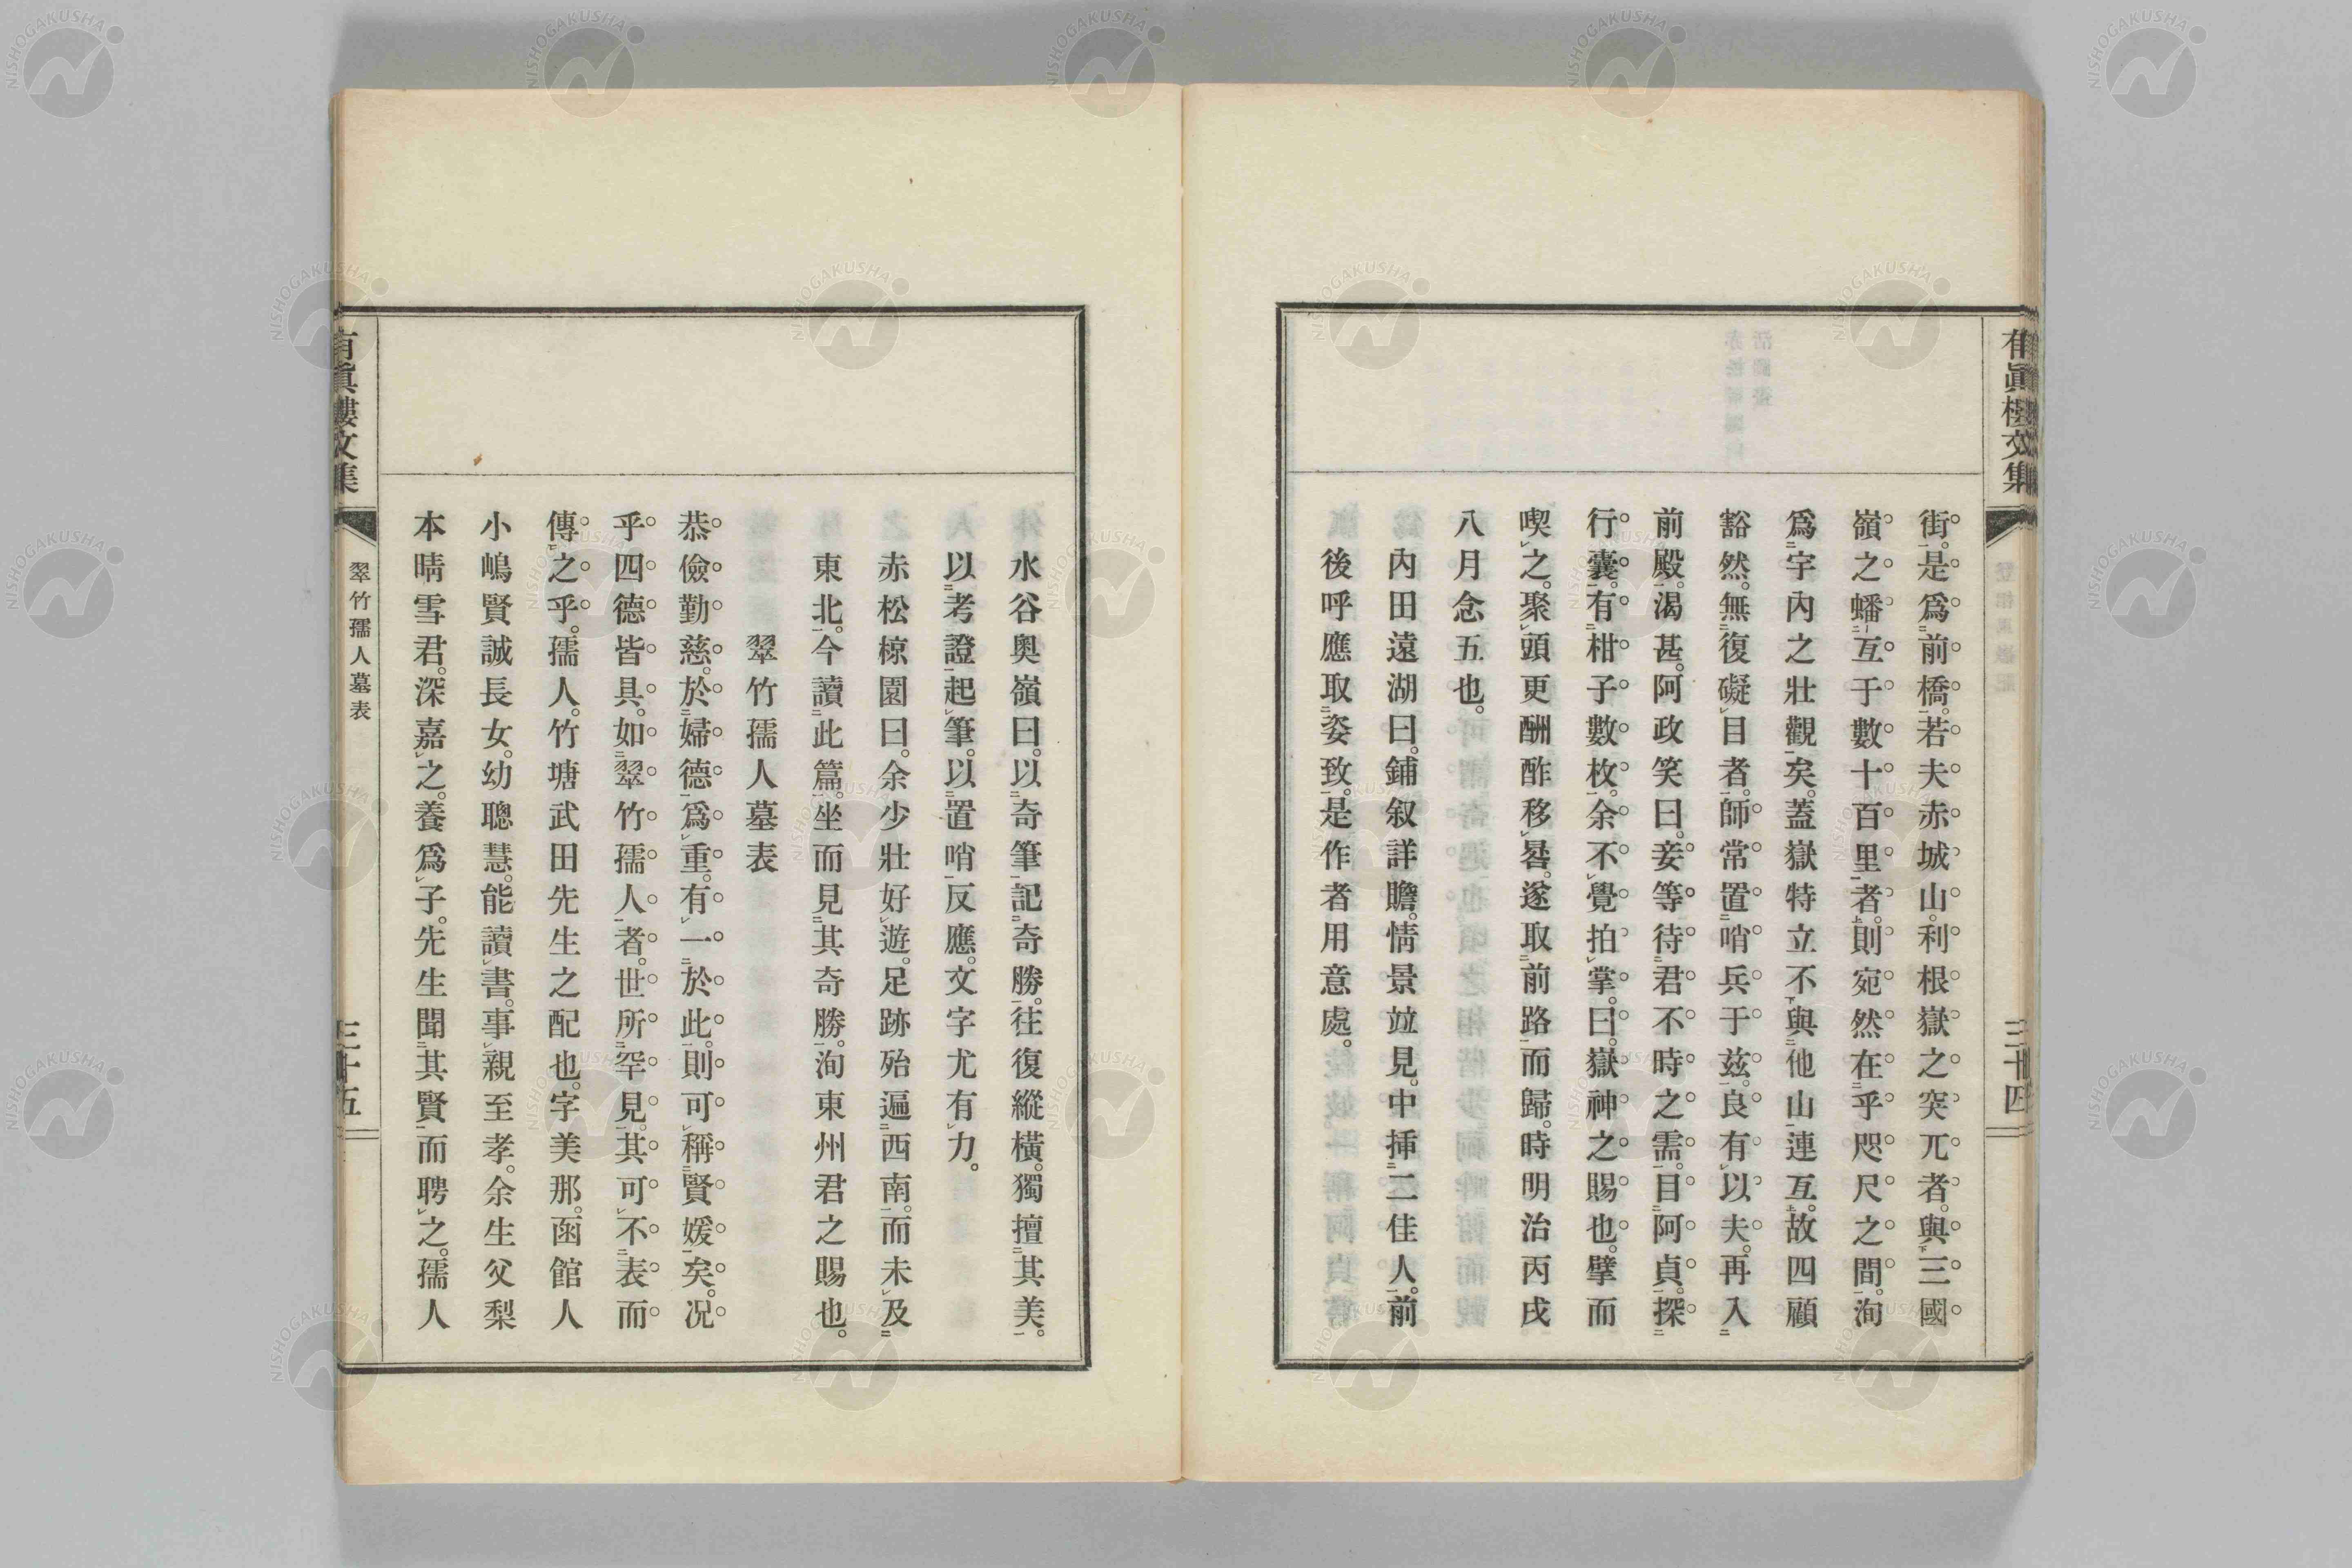 有眞樓文集
三十四
街。是爲前橋。若夫赤城山。利根嶽之突兀者。與三國
嶺之蟠互于數十百里者。則宛然在乎咫尺之間。洵
爲宇內之壯觀矣。蓋嶽特立不與他山連互。故四顧
豁然。無復礙目者。師常置哨兵于玆。良有以夫。再入
前殿。渴甚。阿政笑曰。妾等待君不時之需。目阿貞。探
行囊。有柑子數枚。余不覺拍掌。曰。嶽神之賜也。擘而
喫之。聚頭更酬酢移晷。遂取前路而歸。時明治丙戌
八月念五也。
內田遠湖曰。鋪叙詳贍。情景竝見。中挿二佳人。前
後呼應取姿致。是作者用意處。
水谷奥嶺曰。以奇筆記奇勝。往復縱橫。獨擅其美。
以考證起筆。以置哨反應。文字尤有力。
赤松椋園曰。余少壯好遊。足跡殆遍西南。而未及
東北。今讀此篇。坐而見其奇勝。洵東州君之賜也。
翠竹孺人墓表
恭儉勤慈。於婦德爲重。有一於此。則可稱賢媛矣。况
乎四德皆具。如翠竹孺人者。世所罕見。其可不表而
傳之乎。孺人。竹塘武田先生之配也。字美那。函館人
小嶋賢誠長女。幼聰慧。能讀書。事親至孝。余生父梨
本晴雪君。深嘉之。養爲子。先生聞其賢而聘之。孺人
有眞樓文集
翠竹孺人墓表
三十五
NISHOGAKUSHA